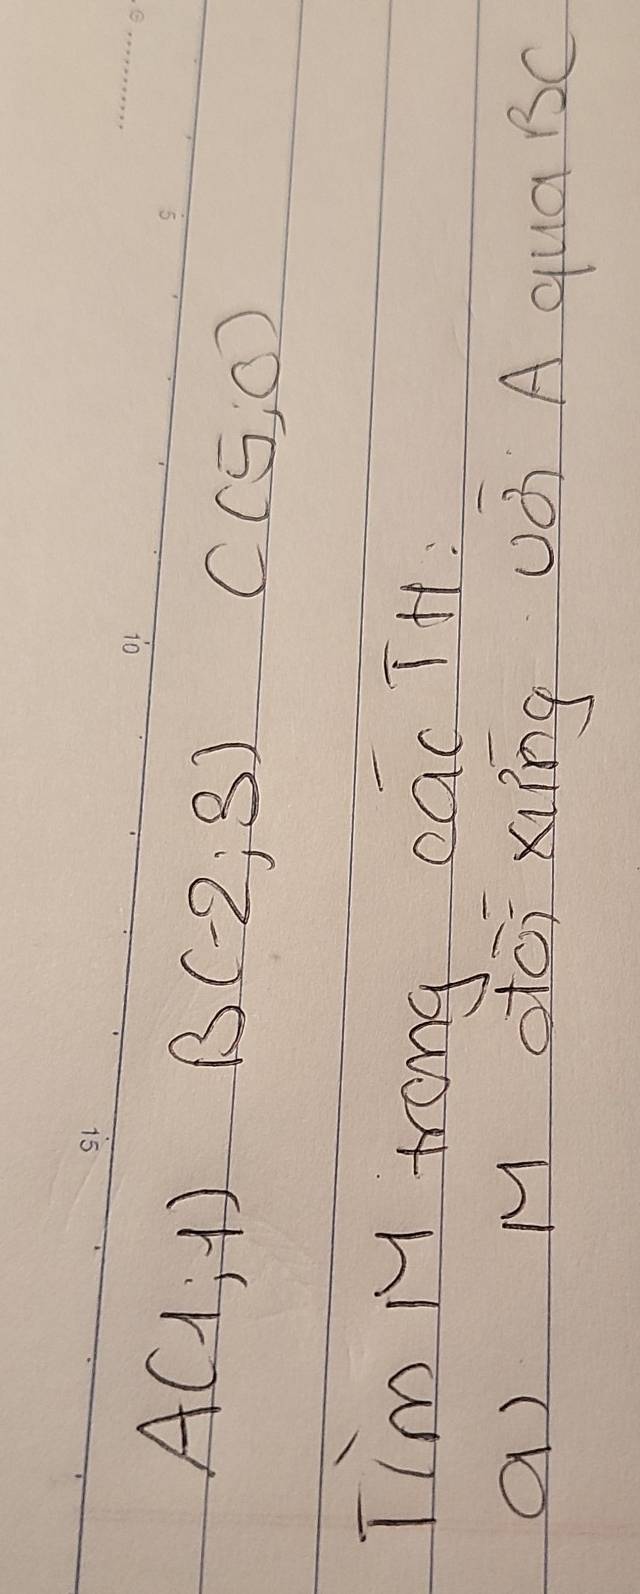 A(1;1) B(-2;3) C(5;0)
Tìm M trong các TH:
a) M đối xứng với A qua BC
5
10
15